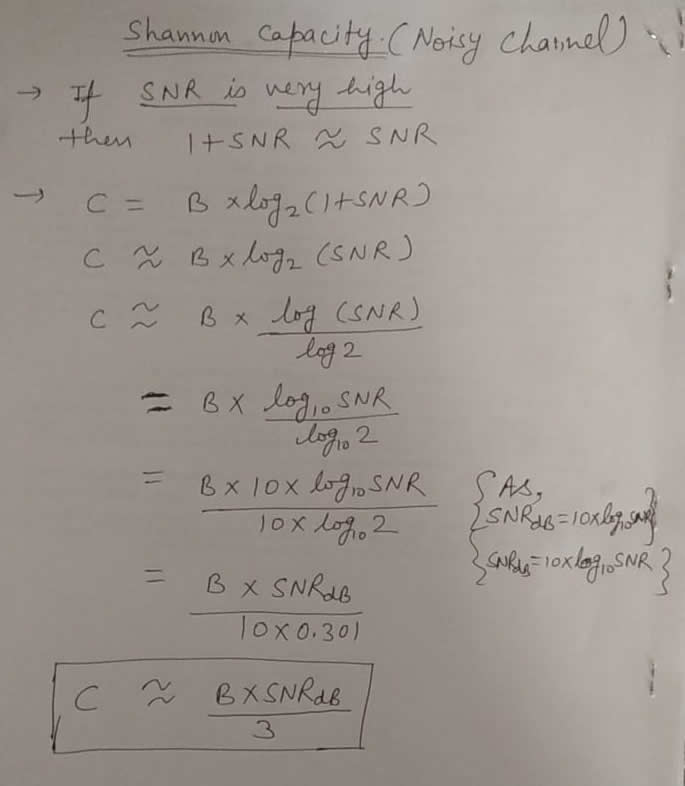 Shannon Capacity. (Noisy Channel)
→ If SNR is very high
then 1+SNR ≈ SNR
→ C = B × log₂(1+SNR)
C ≈ B × log₂ (SNR)
C ≈ B × log (SNR) / log 2
= B × log₁₀ SNR / log₁₀ 2
= B × 10 × log₁₀ SNR / 10 × log₁₀ 2
{ As,
SNR_dB = 10 × log₁₀ SNR }
{ SNR_dB = 10 × log₁₀ SNR }
= B × SNR_dB / 10 × 0.301
C ≈ B × SNR_dB / 3